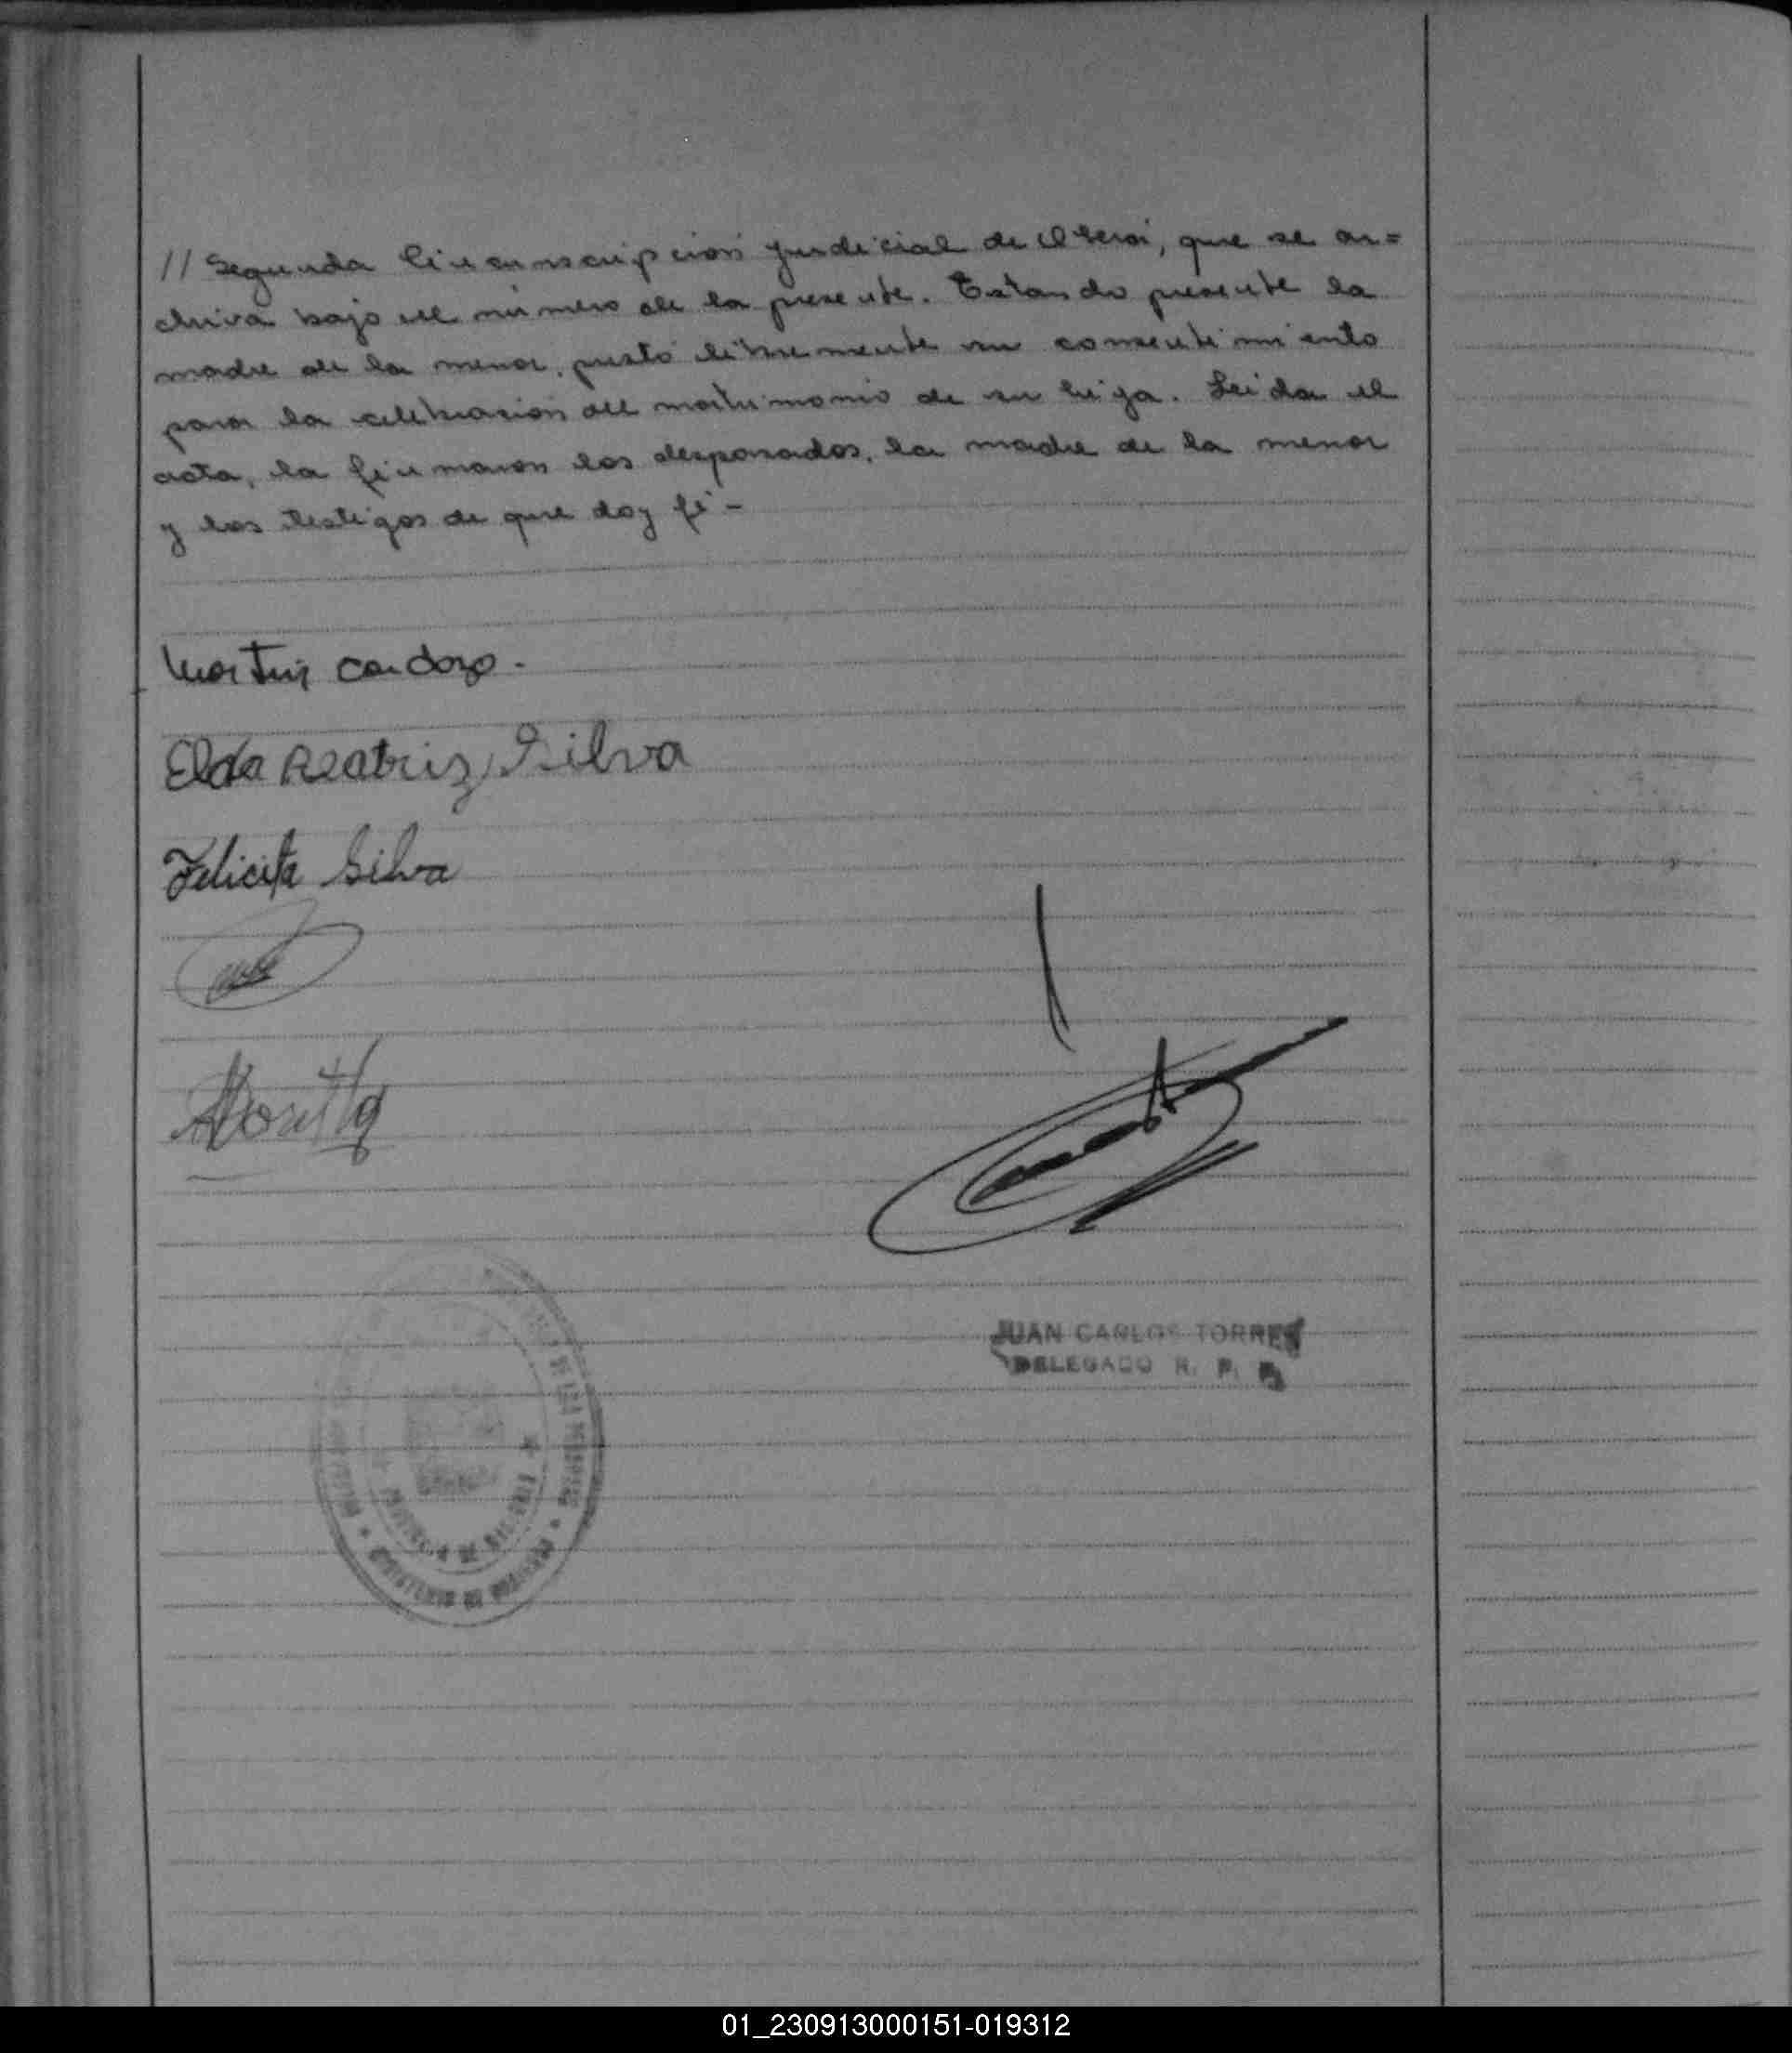 // Segunda Circunscripción Judicial de Oberá, que se ar=
chiva bajo el número de la presente. Estando presente la
madre de la menor, prestó libremente su consentimiento
para la celebración del matrimonio de su hija. Leída el
acta, la firmaron los desposados, la madre de la menor
y los testigos de que doy fé -
Martin Cardozo.
Elda Beatriz Silva
Felicita Silva
JUAN CARLOS TORRES
DELEGADO R. P.
MINISTERIO DE GOBIERNO
PROVINCIA DE MISIONES
01_230913000151-019312